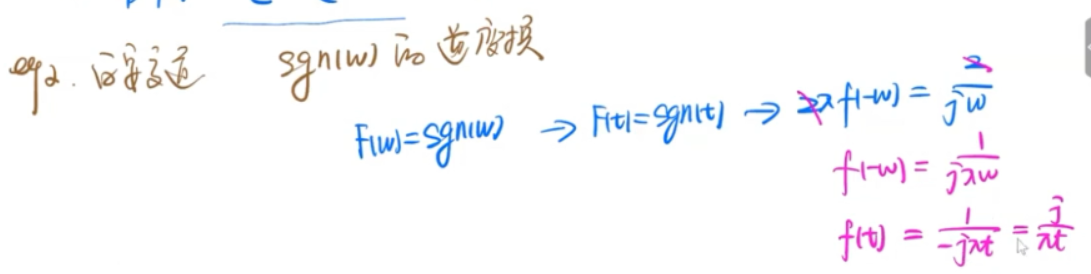 eg2. 西安交通 sgn(w) 的逆变换
F(w)=sgn(w) → F(t)=sgn(t) → 2πf(-w) = 2/jw
f(-w) = 1/jπw
f(t) = 1/-jπt = j/πt